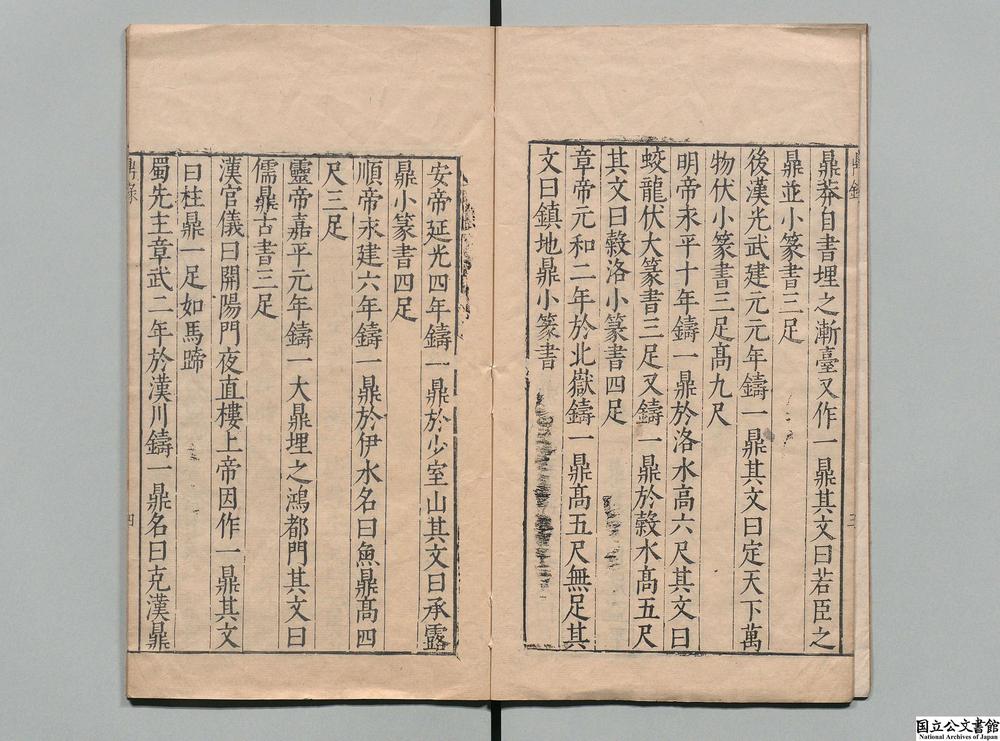 鼎錄
三
鼎莽自書埋之漸臺又作一鼎其文曰若臣之
鼎並小篆書三足
後漢光武建元元年鑄一鼎其文曰定天下萬
物伏小篆書三足高九尺
明帝永平十年鑄一鼎於洛水高六尺其文曰
蛟龍伏大篆書三足又鑄一鼎於穀水高五尺
其文曰穀洛小篆書四足
章帝元和二年於北嶽鑄一鼎高五尺無足其
文曰鎮地鼎小篆書
安帝延光四年鑄一鼎於少室山其文曰承露
鼎小篆書四足
順帝永建六年鑄一鼎於伊水名曰魚鼎高四
尺三足
靈帝嘉平元年鑄一大鼎埋之鴻都門其文曰
儒鼎古書三足
漢官儀曰開陽門夜直樓上帝因作一鼎其文
曰柱鼎一足如馬蹄
蜀先主章武二年於漢川鑄一鼎名曰克漢鼎
鼎錄
四
国立公文書館
National Archives of Japan